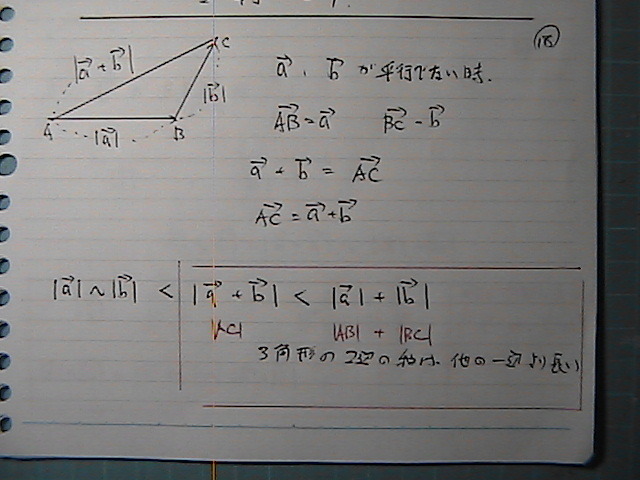 ⑮
|a⃗ + b⃗|
C
|b⃗|
A
B
|a⃗|
a⃗、b⃗ が平行でない時.
AB⃗ = a⃗ BC⃗ = b⃗
a⃗ + b⃗ = AC⃗
AC⃗ = a⃗ + b⃗
|a⃗| ~ |b⃗| < |a⃗ + b⃗| < |a⃗| + |b⃗|
|AC| |AB| + |BC|
3角形の2辺の和は、他の一辺より長い